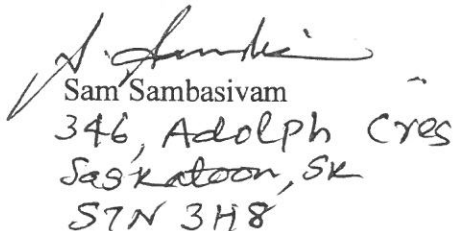 Sam Sambasivam
346, Adolph Cres
Saskatoon, SK
S7N 3H8